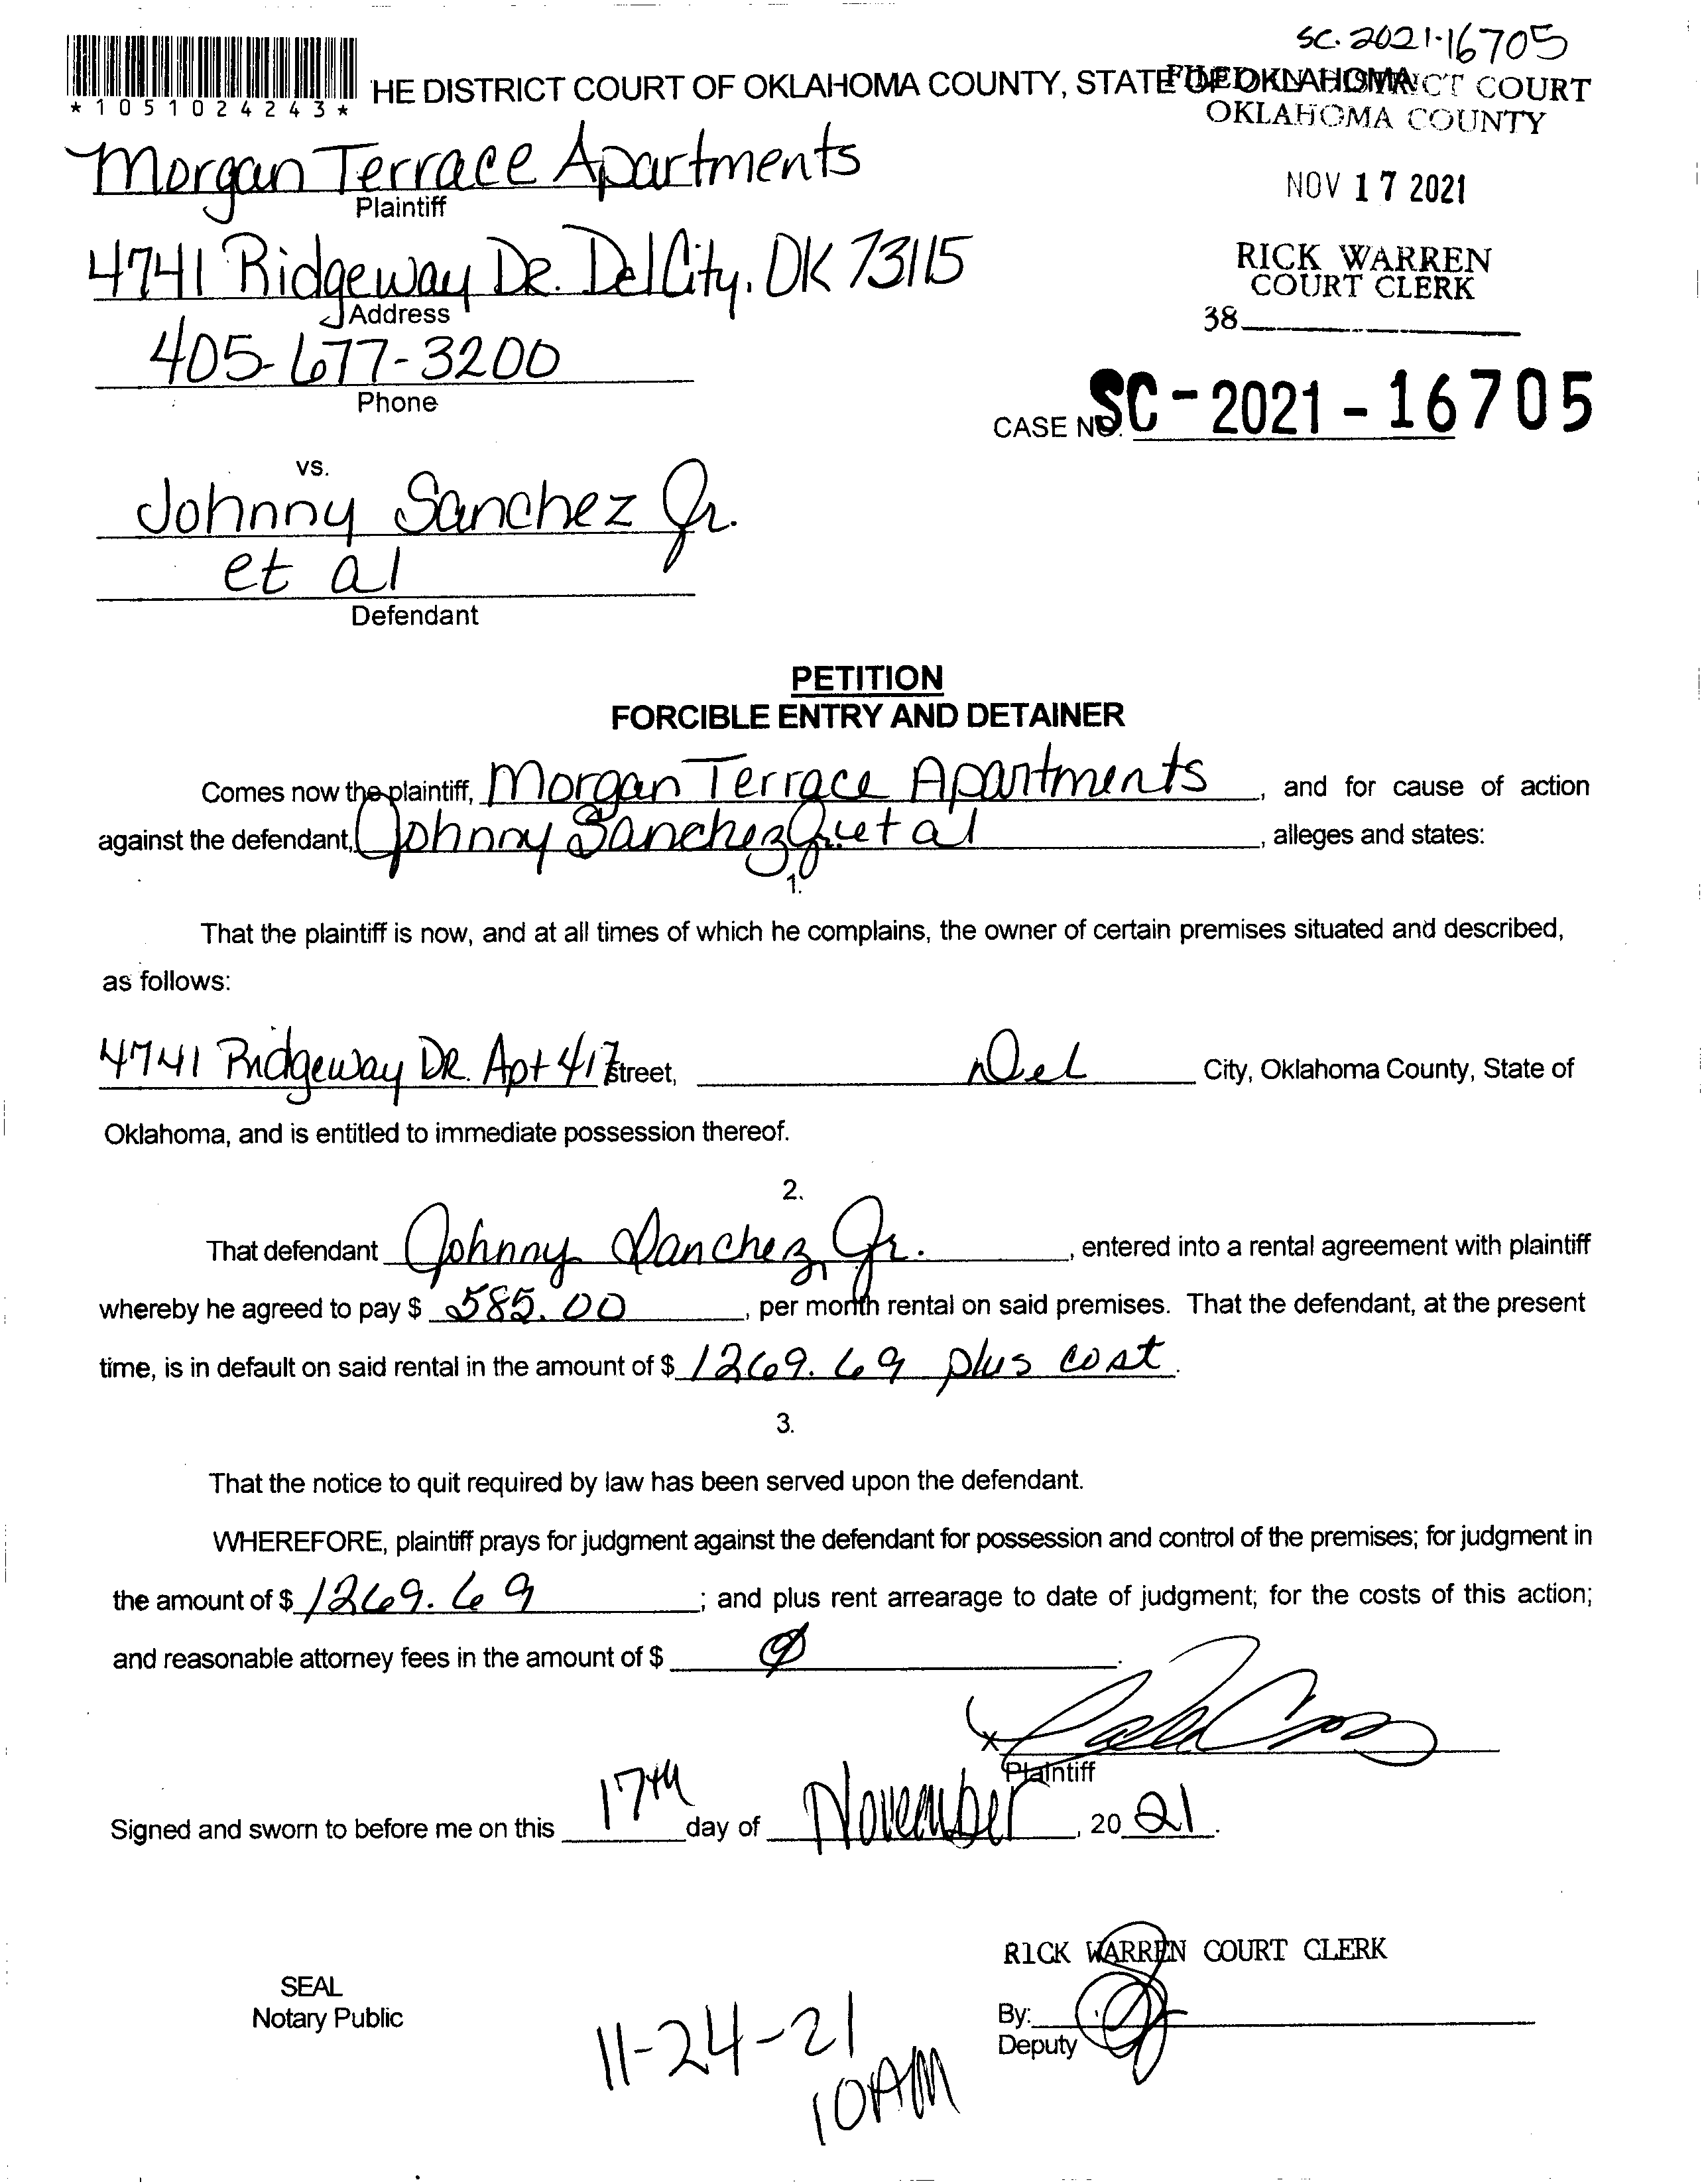 SC-2021-16705
*1051024243*
HE DISTRICT COURT OF OKLAHOMA COUNTY, STATE OF OKLAHOMA
FILED IN DISTRICT COURT
OKLAHOMA COUNTY
Morgan Terrace Apartments
Plaintiff
NOV 17 2021
4741 Ridgeway DR. Del City, OK 73115
Address
RICK WARREN
COURT CLERK
38
405-677-3200
Phone
CASE NO. SC-2021-16705
vs.
Johnny Sanchez Jr.
et al
Defendant
PETITION
FORCIBLE ENTRY AND DETAINER
Comes now the plaintiff, Morgan Terrace Apartments, and for cause of action
against the defendant, Johnny Sanchez Jr et al, alleges and states:
1.
That the plaintiff is now, and at all times of which he complains, the owner of certain premises situated and described,
as follows:
4741 Ridgeway DR. Apt 417 Street, Del City, Oklahoma County, State of
Oklahoma, and is entitled to immediate possession thereof.
2.
That defendant Johnny Sanchez, Jr., entered into a rental agreement with plaintiff
whereby he agreed to pay $ 585.00, per month rental on said premises. That the defendant, at the present
time, is in default on said rental in the amount of $ 1269.69 plus cost.
3.
That the notice to quit required by law has been served upon the defendant.
WHEREFORE, plaintiff prays for judgment against the defendant for possession and control of the premises; for judgment in
the amount of $ 1269.69; and plus rent arrearage to date of judgment; for the costs of this action;
and reasonable attorney fees in the amount of $ 0.
x
Plaintiff
Signed and sworn to before me on this 17th day of November, 2021.
RICK WARREN COURT CLERK
SEAL
Notary Public
By:
Deputy
11-24-21
10AM